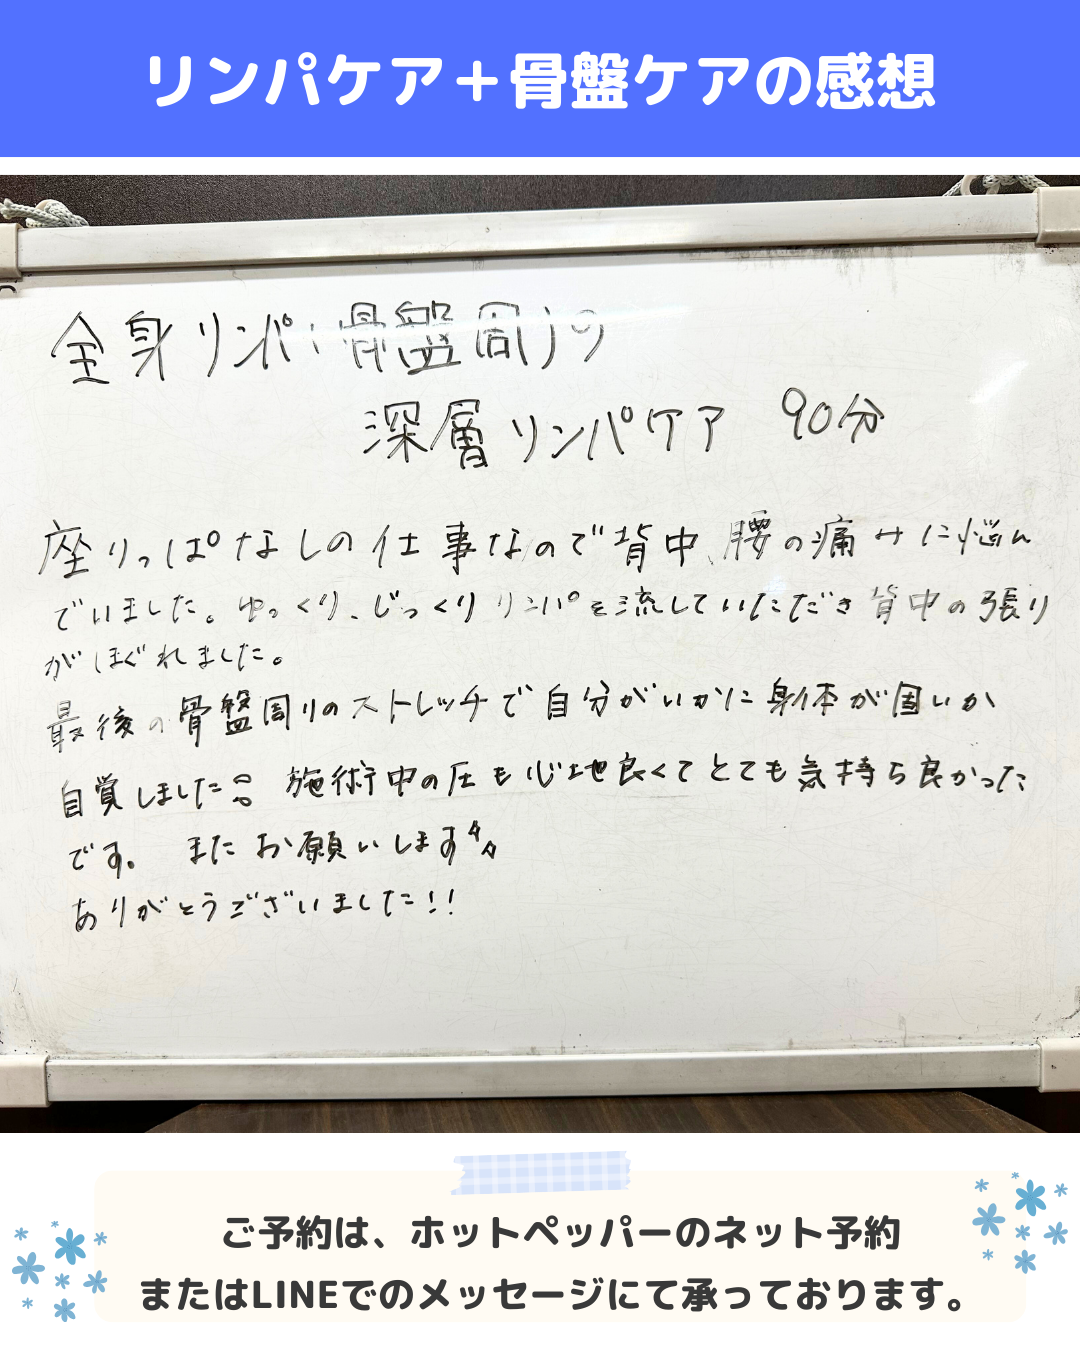 リンパケア＋骨盤ケアの感想
全身リンパ+骨盤周りの
深層リンパケア 90分
座りっぱなしの仕事なので背中、腰の痛みに悩ん
でいました。ゆっくり、じっくりリンパを流していただき背中の張り
がほぐれました。
最後の骨盤周りのストレッチで自分がいかに身体が固いか
自覚しました
施術中の圧も心地良くてとても気持ち良かった
です。 またお願いします
ありがとうございました!!
ご予約は、ホットペッパーのネット予約
またはLINEでのメッセージにて承っております。